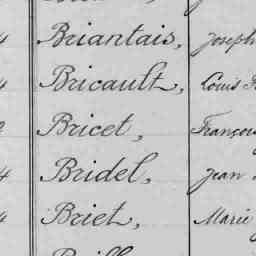 4 Briantais, Joseph
4 Bricault, Louis
Bricet, François
4 Bridel, Jean
4 Briet, Marie